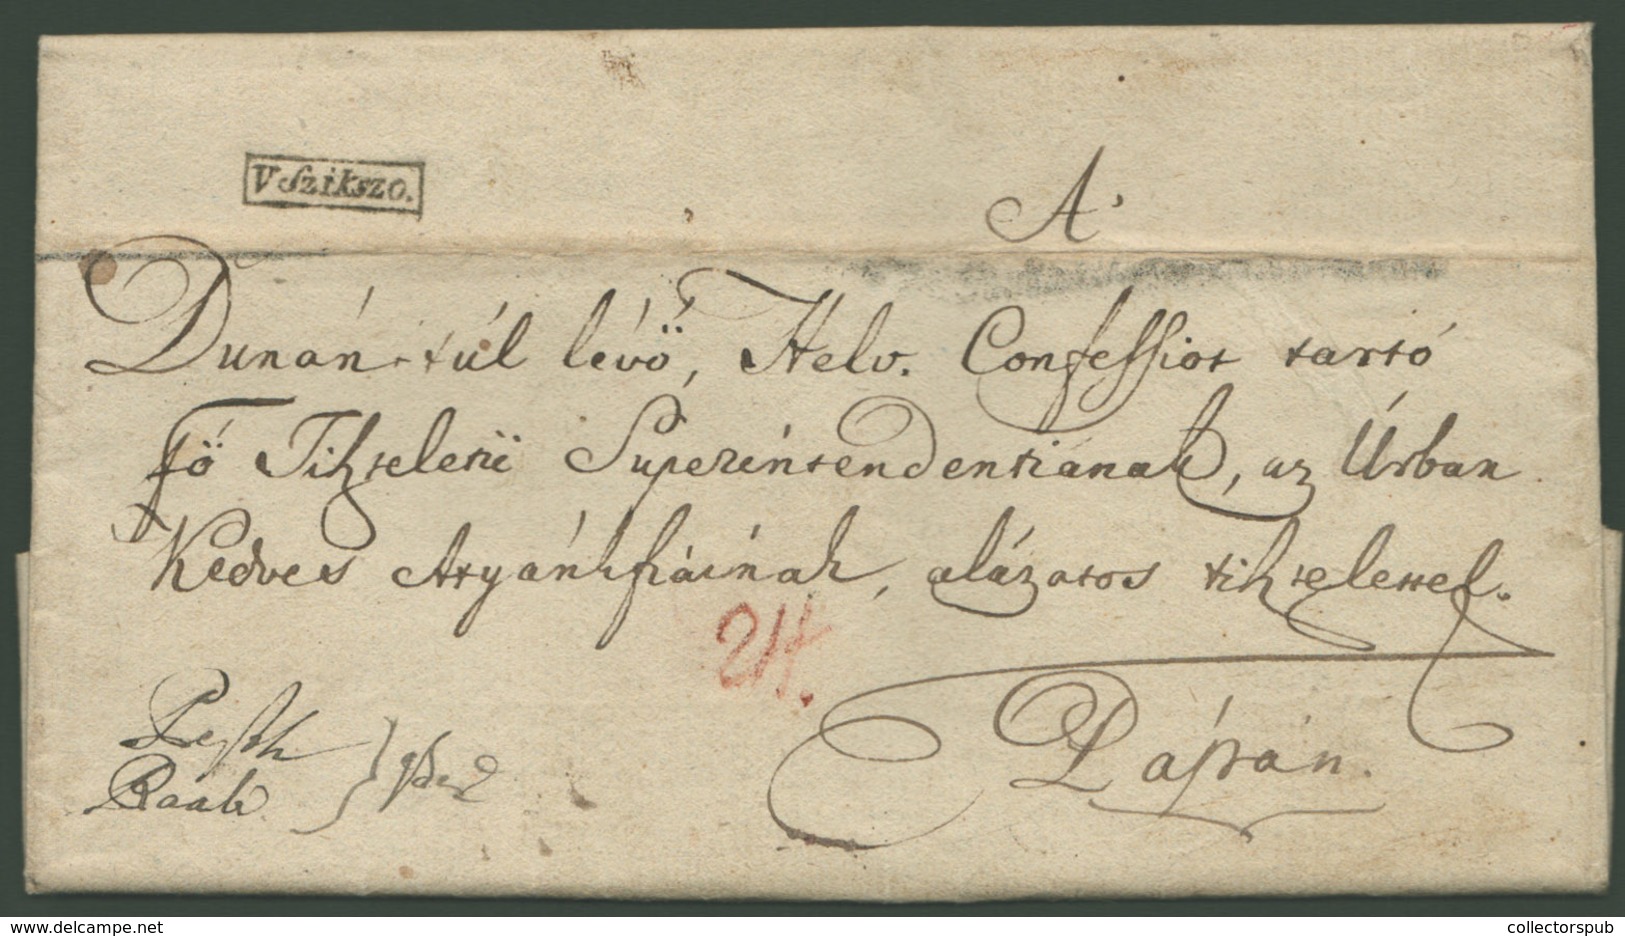 V Szikszo.
A'
Dunán-túl lévő, Helv. Confessiót tartó
Fő Tiszteletü Superintendentiának, az Úrban
Kedves Atyánkfiainak, alázatos tisztelettel.
24.
Pápán.
Pesth
Raab
www.delcampe.net
collectorspub